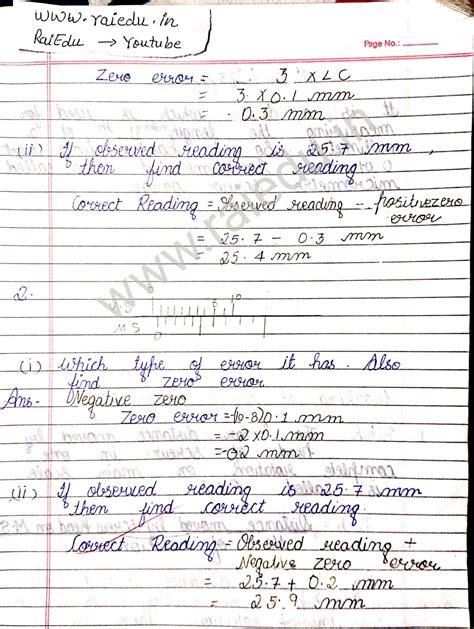 www.raiedu.in
RaiEdu → Youtube
Page No.:
Zero error = 3 × LC
= 3 × 0.1 mm
= 0.3 mm
(ii) If observed reading is 25.7 mm,
then find correct reading.
Correct Reading = Observed reading - positive zero
error
= 25.7 - 0.3 mm
= 25.4 mm
www.raiedu.in
2.
V.S 0 8 10
M.S 0
(i) Which type of error it has. Also
find zero error.
Ans- Negative zero
Zero error = -(10-8)0.1 mm
= -2×0.1 mm
= -0.2 mm
(ii) If observed reading is 25.7 mm
then find correct reading.
Correct Reading = Observed reading +
Negative zero error
= 25.7 + 0.2 mm
= 25.9 mm